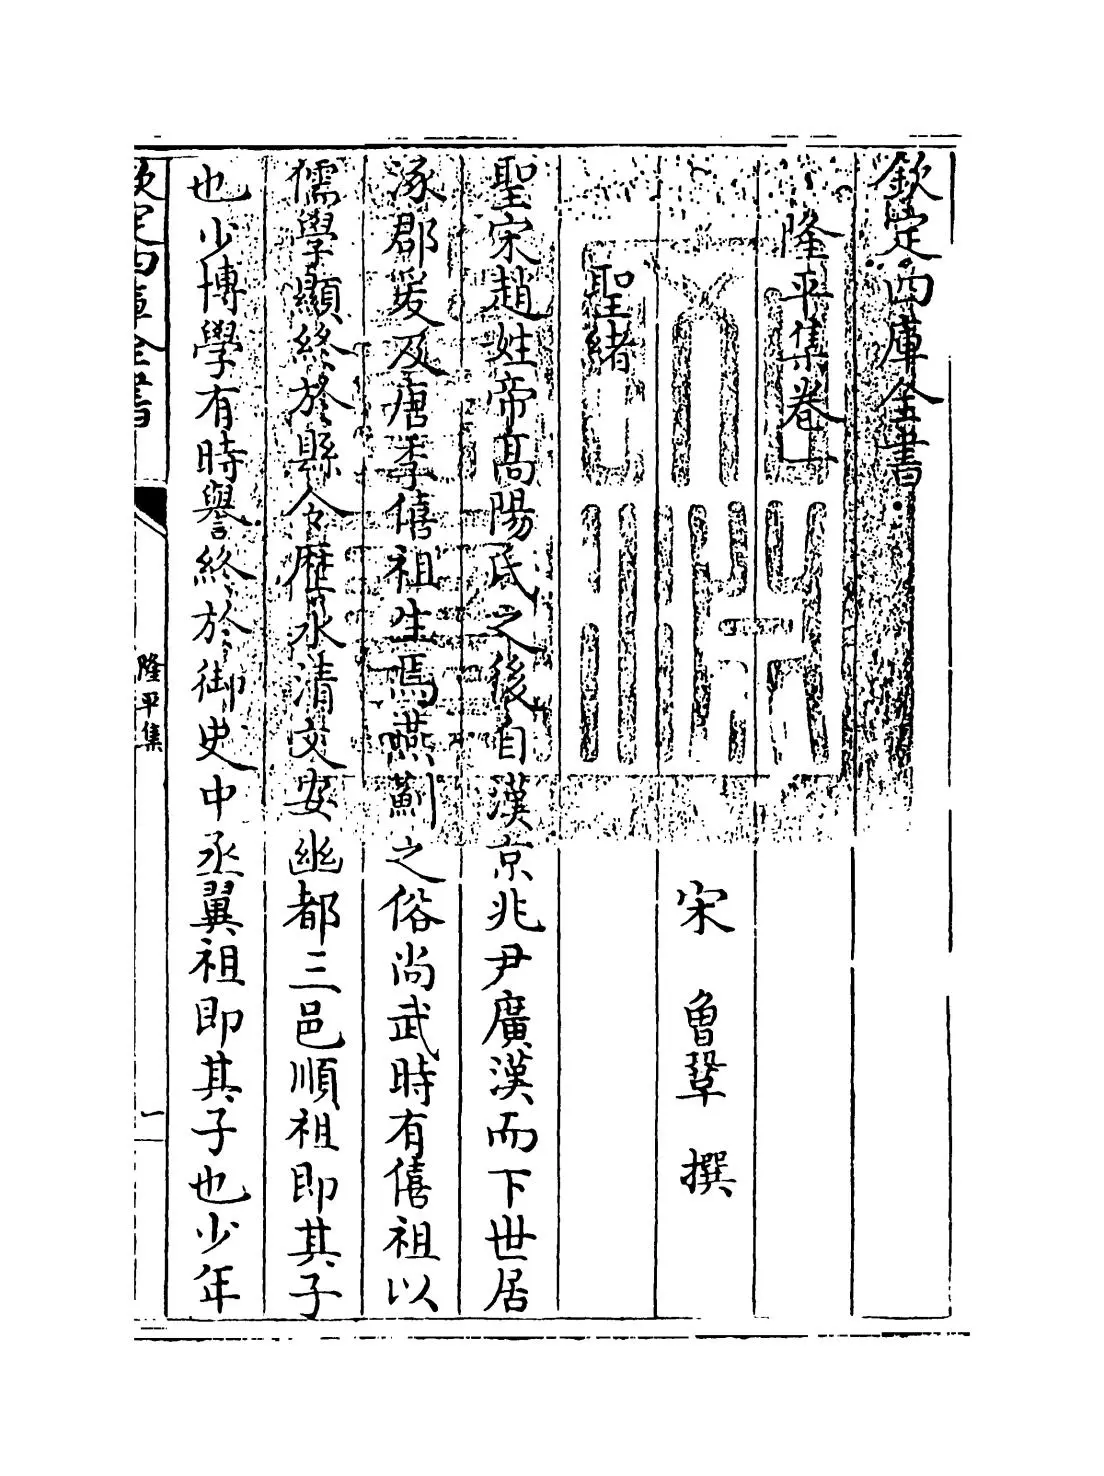 欽定四庫全書
隆平集卷一
宋　曾鞏　撰
聖緒
聖宋趙姓帝髙陽氏之後自漢京兆尹廣漢而下世居
涿郡爰及唐季僖祖生焉燕薊之俗尚武時有僖祖以
儒學顯終於縣令歴永清文安幽都三邑順祖即其子
也少博學有時譽終於御史中丞翼祖即其子也少年
欽定四庫全書
隆平集
一